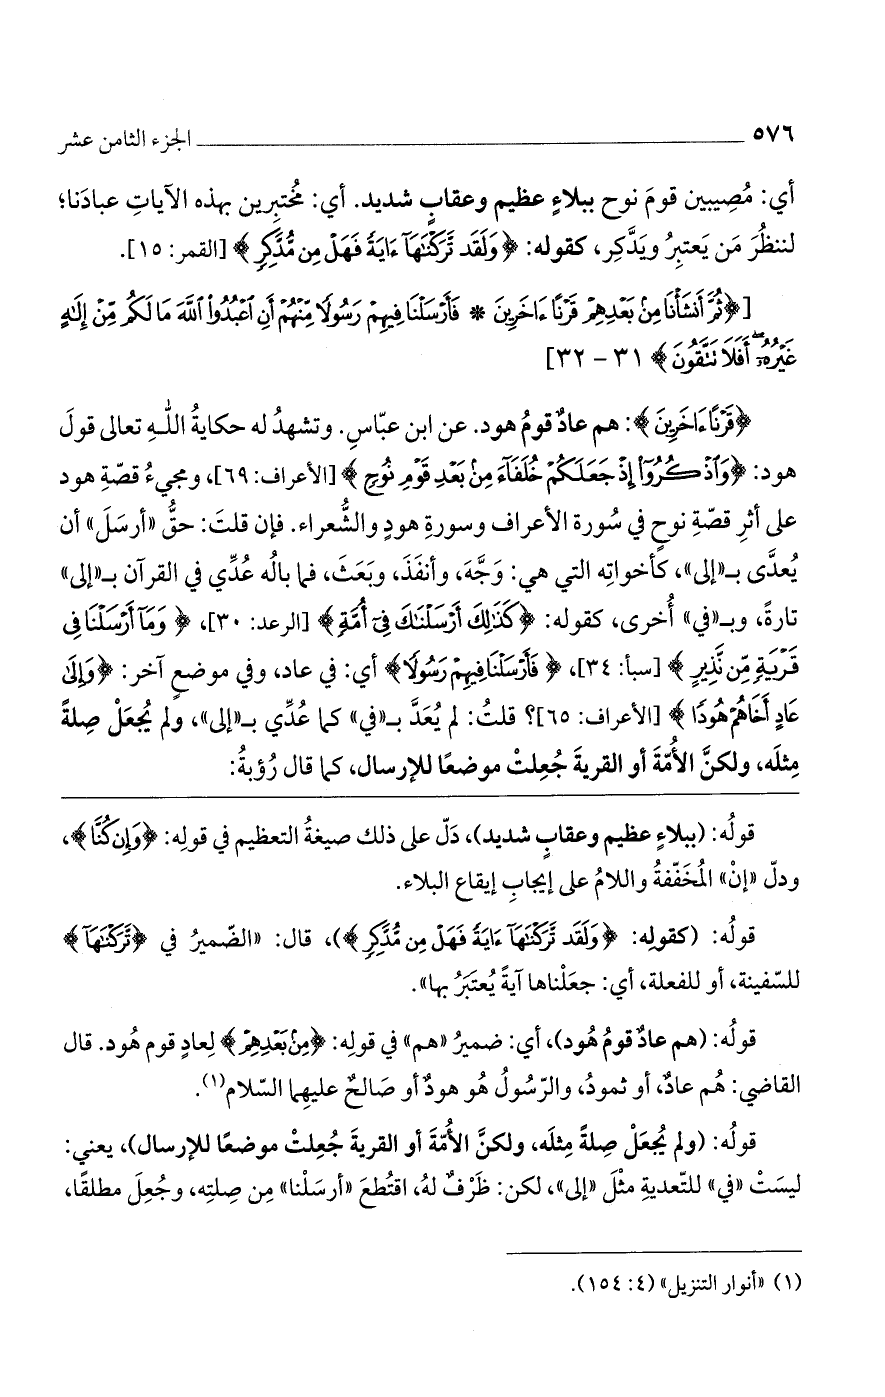 ٥٧٦ الجزء الثامن عشر
أي: مُصِيبين قومَ نوح ببلاءٍ عظيم وعقابٍ شديد. أي: مُختبِرين بهذه الآياتِ عبادَنا؛
لننظُرَ مَن يَعتبِرُ ويَدَّكِر، كقوله: ﴿وَلَقَد تَّرَكْنَٰهَآ ءَايَةً فَهَلْ مِن مُّدَّكِرٍ﴾ [القمر: ١٥].
[﴿ثُمَّ أَنشَأْنَا مِنۢ بَعْدِهِمْ قَرْنًا ءَاخَرِينَ * فَأَرْسَلْنَا فِيهِمْ رَسُولًا مِّنْهُمْ أَنِ ٱعْبُدُوا۟ ٱللَّهَ مَا لَكُم مِّنْ إِلَٰهٍ
غَيْرُهُۥٓ ۖ أَفَلَا تَتَّقُونَ﴾ ٣١ – ٣٢]
﴿قَرْنًا ءَاخَرِينَ﴾: هم عادٌ قومُ هود. عن ابن عبّاسٍ. وتشهدُ له حكايةُ اللّهِ تعالى قولَ
هود: ﴿وَٱذْكُرُوٓا۟ إِذْ جَعَلَكُمْ خُلَفَآءَ مِنۢ بَعْدِ قَوْمِ نُوحٍ﴾ [الأعراف: ٦٩]، ومجيءُ قصّةِ هود
على أثرِ قصّةِ نوحٍ في سُورة الأعراف وسورةِ هودٍ والشُّعراء. فإن قلتَ: حقُّ «أرسَلَ» أن
يُعدَّى بـ«إلى»، كأخواتِه التي هي: وَجَّهَ، وأنفَذَ، وبَعَثَ، فما بالُه عُدِّي في القرآن بـ«إلى»
تارةً، وبـ«في» أُخرى، كقوله: ﴿كَذَٰلِكَ أَرْسَلْنَٰكَ فِىٓ أُمَّةٍ﴾ [الرعد: ٣٠]، ﴿وَمَآ أَرْسَلْنَا فِى
قَرْيَةٍ مِّن نَّذِيرٍ﴾ [سبأ: ٣٤]، ﴿فَأَرْسَلْنَا فِيهِمْ رَسُولًا﴾ أي: في عاد، وفي موضعٍ آخر: ﴿وَإِلَىٰ
عَادٍ أَخَاهُمْ هُودًا﴾ [الأعراف: ٦٥]؟ قلتُ: لم يُعَدَّ بـ«في» كما عُدِّي بـ«إلى»، ولم يُجعَلْ صِلةً
مِثلَه، ولكنَّ الأُمّةَ أو القريةَ جُعِلتْ موضعًا للإرسال، كما قال رُؤبةُ:
قولُه: (ببلاءٍ عظيم وعقابٍ شديد)، دَلّ على ذلك صيغةُ التعظيم في قولِه: ﴿وَإِن كُنَّا﴾،
ودلّ «إنْ» المُخَفّفةُ واللامُ على إيجابِ إيقاع البلاء.
قولُه: (كقولِه: ﴿وَلَقَد تَّرَكْنَٰهَآ ءَايَةً فَهَلْ مِن مُّدَّكِرٍ﴾)، قال: «الضّميرُ في ﴿تَّرَكْنَٰهَآ﴾
للسّفينة، أو للفعلة، أي: جعَلْناها آيةً يُعتَبَرُ بها».
قولُه: (هم عادٌ قومُ هُود)، أي: ضميرُ «هم» في قولِه: ﴿مِنۢ بَعْدِهِمْ﴾ لِعادٍ قوم هُود. قال
القاضي: هُم عادٌ، أو ثمودُ، والرّسُولُ هُو هودٌ أو صَالحٌ عليهِما السّلام(١).
قولُه: (ولم يُجعَلْ صِلةً مِثلَه، ولكنَّ الأُمّةَ أو القريةَ جُعِلتْ موضعًا للإرسال)، يعني:
ليسَتْ «في» للتّعديةِ مثْلَ «إلى»، لكن: ظَرْفٌ لهُ، اقتُطعَ «أرسَلْنا» مِن صِلتِه، وجُعِلَ مطلقًا،
(١) «أنوار التنزيل» (٤: ١٥٤).